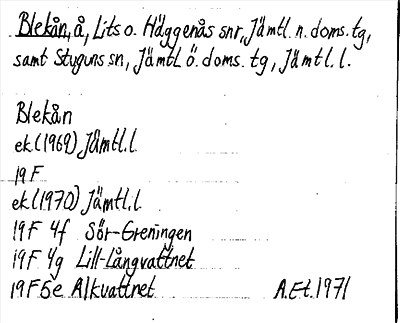 Blekån, å, Lits o. Häggenås snr, Jämtl. n. doms. tg,
samt Stuguns sn, Jämtl. ö. doms. tg, Jämtl. l.
Blekån
ek. (1969) Jämtl. l.
19 F
ek. (1970) Jämtl. l.
19 F 4f Sör-Greningen
19 F 4g Lill-Långvattnet
19 F 5e Alkvattnet A.Et. 1971